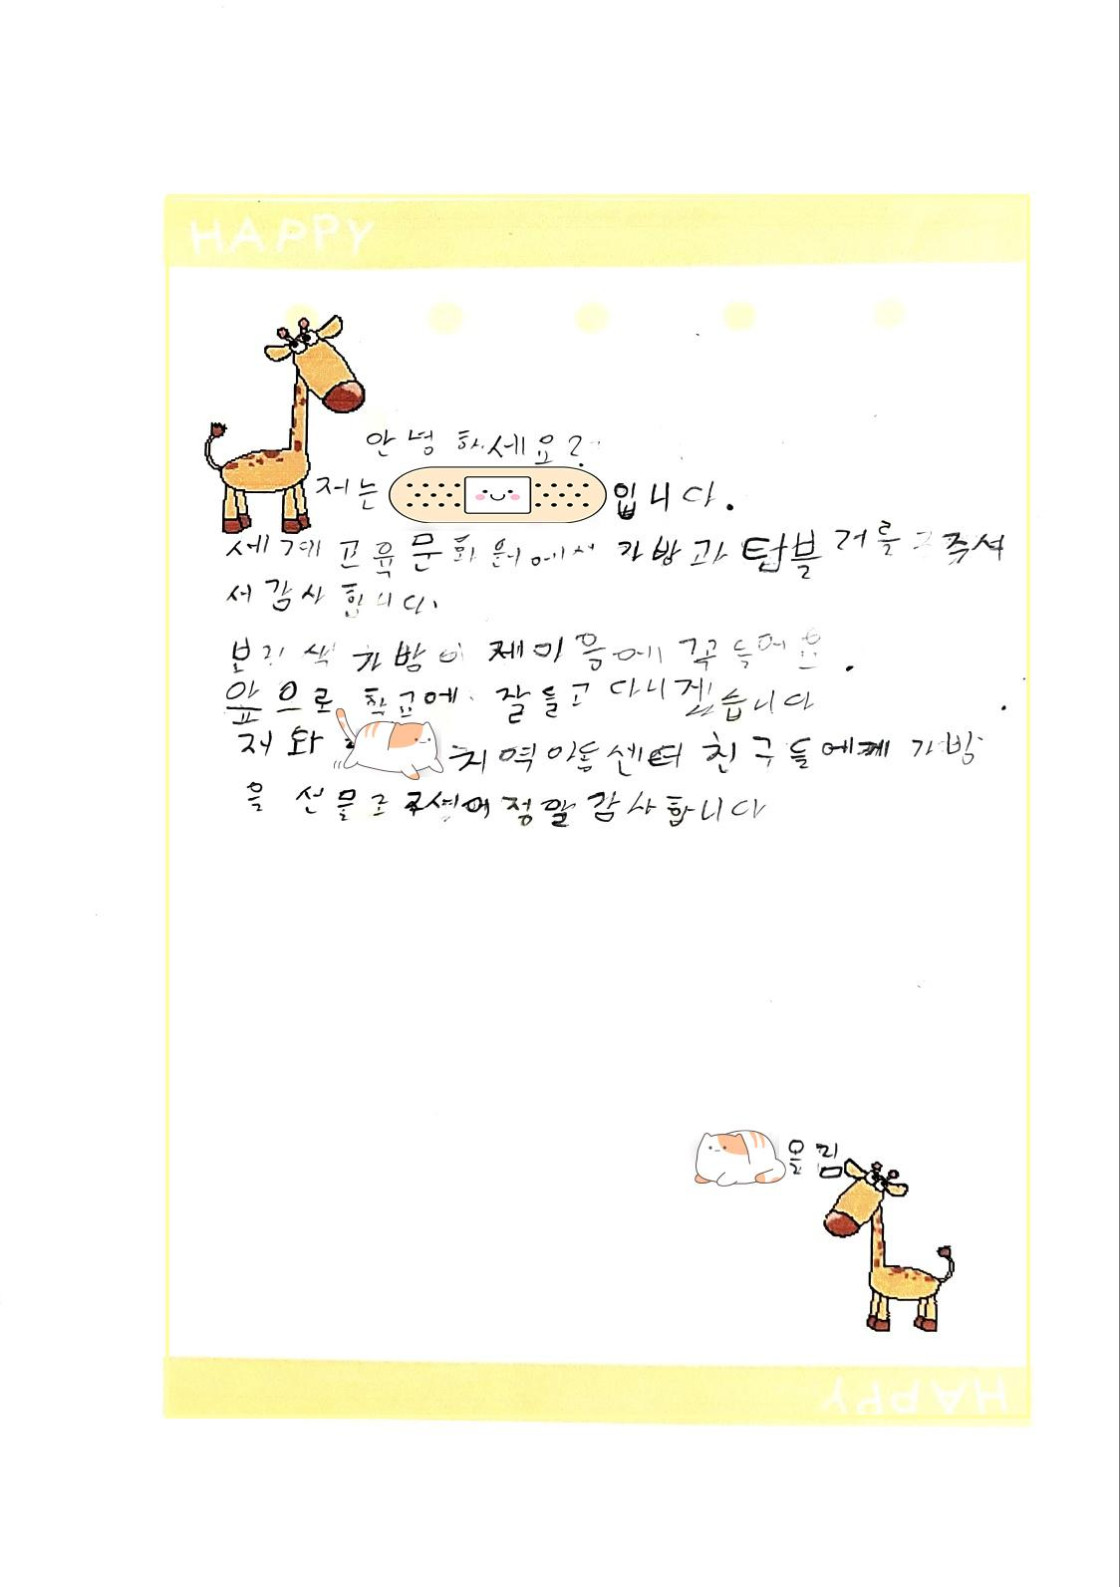 HAPPY
안녕하세요?
저는 입니다.
세계교육문화원에서 가방과 텀블러를 주셔
서 감사합니다.
보라색 가방이 제마음에 꼭들어요.
앞으로 학교에 잘들고 다니겠습니다.
저와 지역아동센터 친구들에게 가방
을 선물로 주셔서 정말 감사합니다
올림
HAPPY